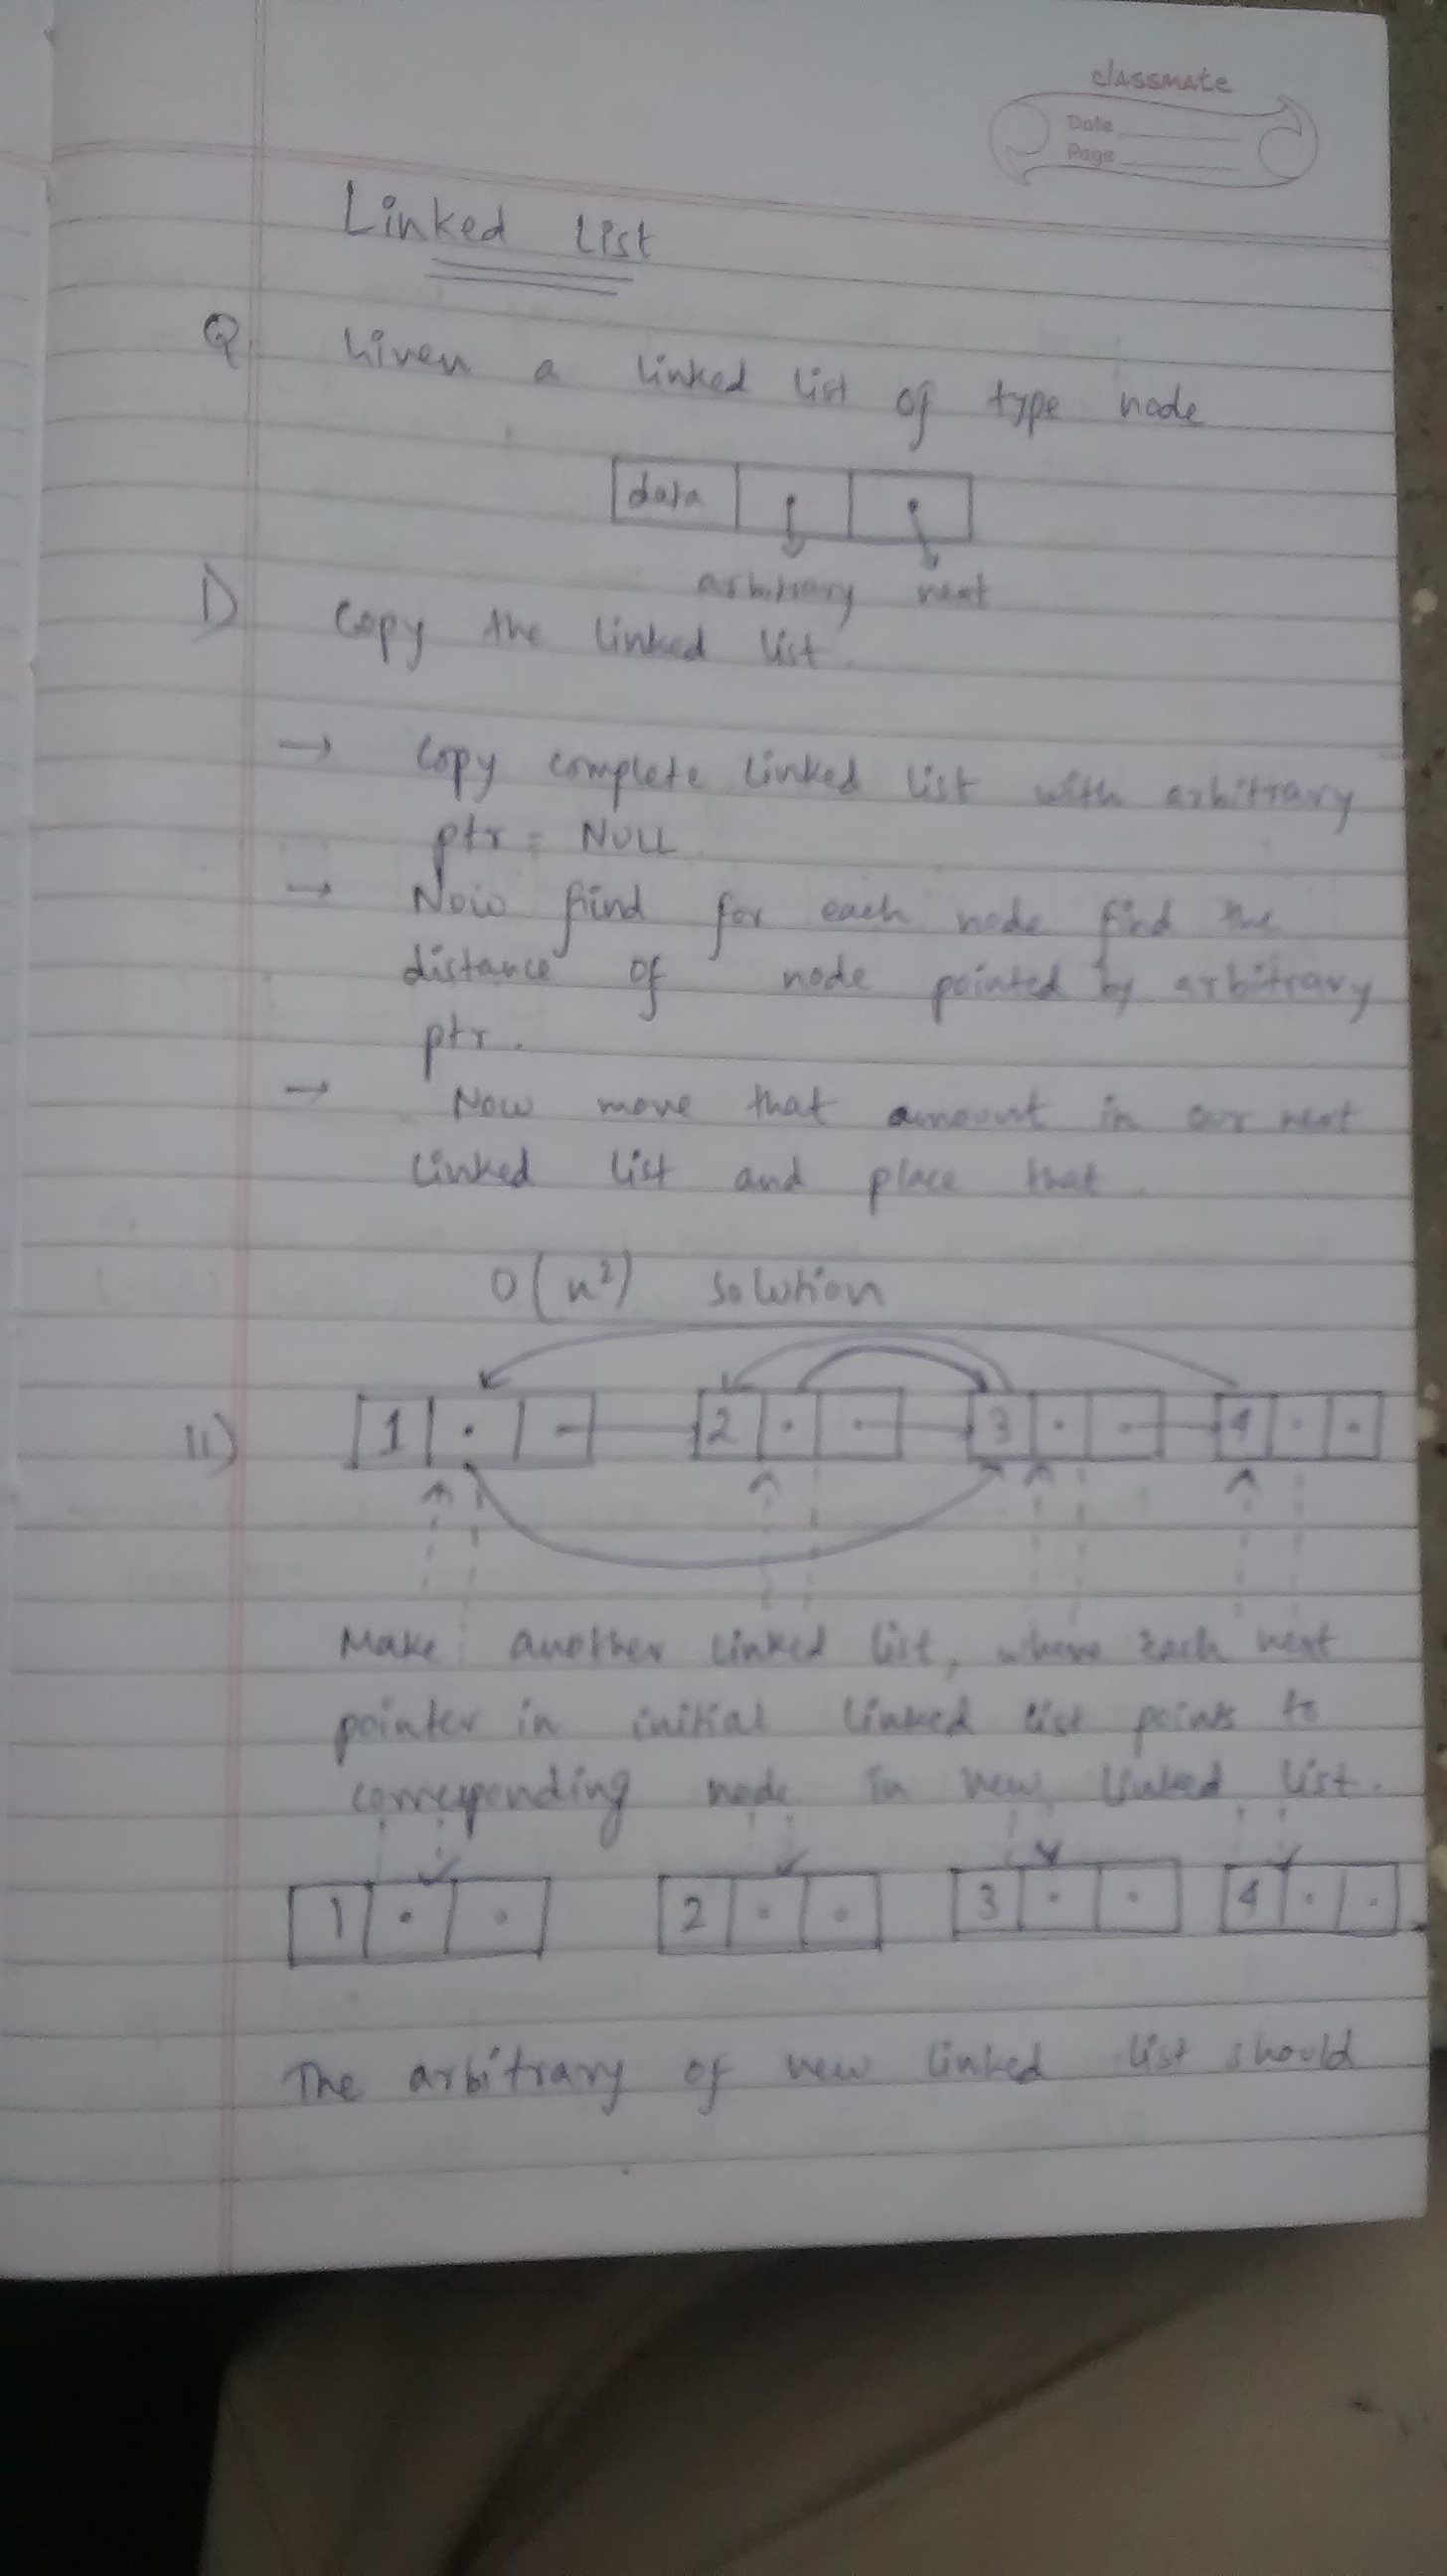 classmate
Date
Page
Linked List
Q. Given a linked list of type node
data
arbitrary next
1) Copy the linked list.
→ Copy complete linked list with arbitrary
ptr = NULL
→ Now find for each node find the
distance of node pointed by arbitrary
ptr.
→ Now move that amount in our next
linked list and place that.
O(n²) solution
11) 1 2 3 4
Make another linked list, where each next
pointer in initial linked list points to
corresponding node in new linked list.
1 2 3 4
The arbitrary of new linked list should